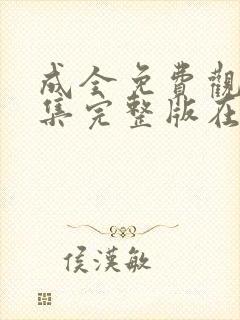 成全免費觀
集完整版在
侯漢敏